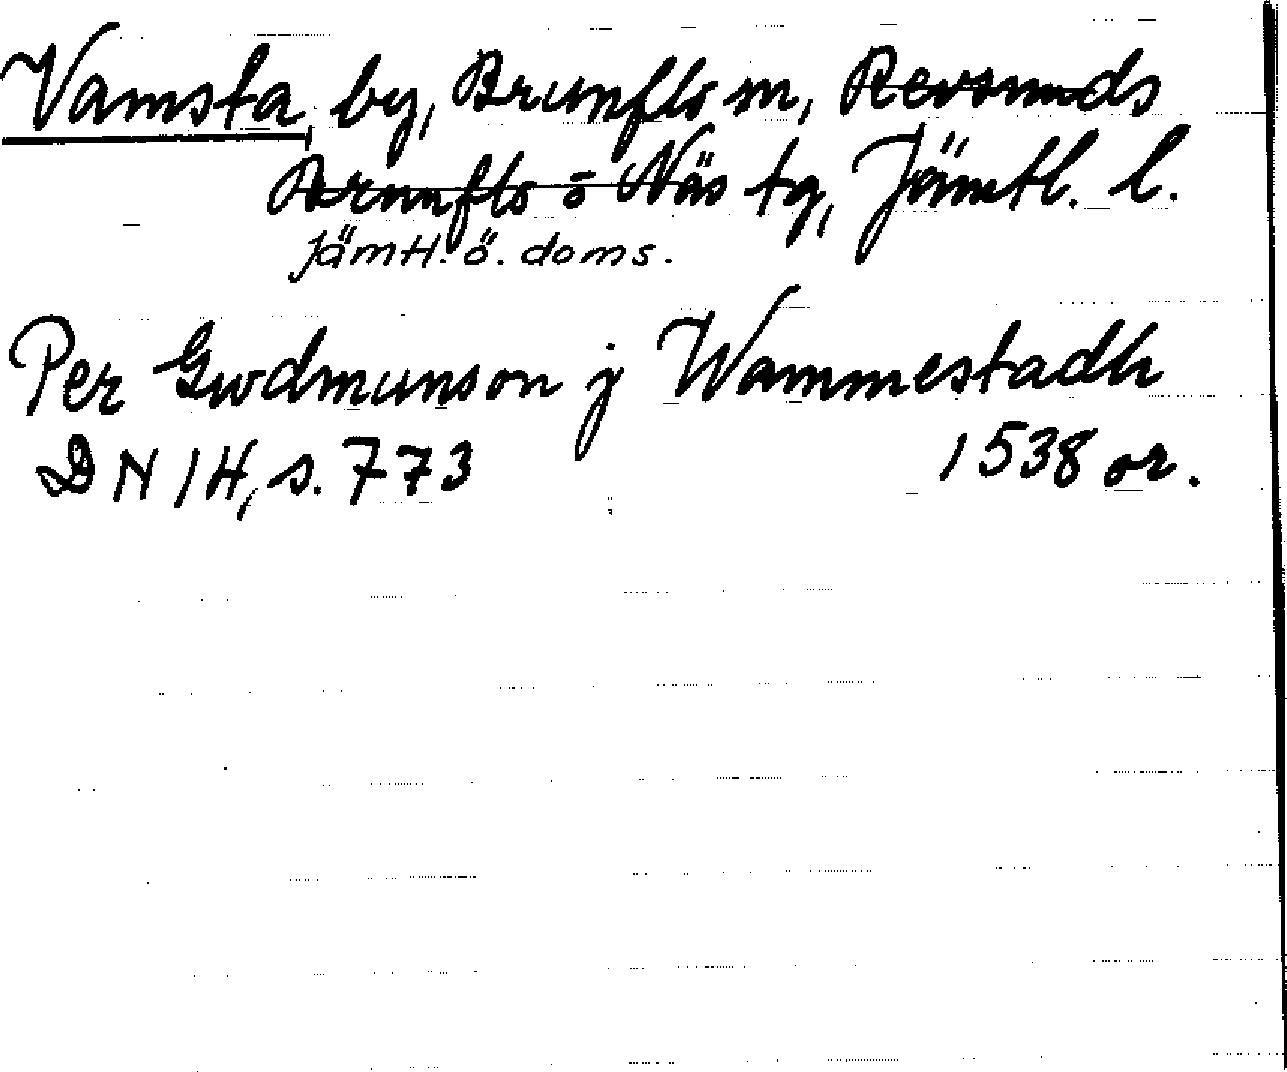 Vamsta by, Brunflo sn, Revsunds
Brunflo o Näs tg, Jämtl. l.
Jämtl. ö. doms.
Per Gwdmunson j Wammestadh
DN 14, s. 773 1538 or.